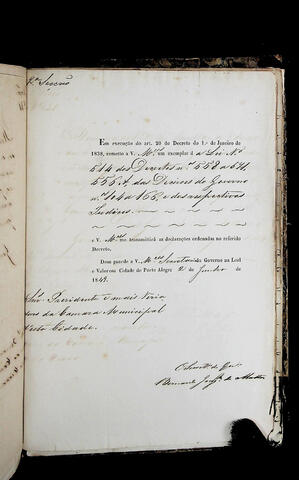 Em execução do art. 20 do Decreto do 1.º de Janeiro de
1838, remetto a V. M.ces um exemplar d a Lei N.º
514 dos Decretos n.os 552 a 571,
e das Decisões do Governo
n.os 144 a 165, e dos respectivos
Indices.
e V. M.ces me transmittirá as declarações ordenadas no referido
Decreto.
Deos guarde a V. M.ces Secretaria do Governo na Leal
e Valorosa Cidade de Porto Alegre 2 de Junho de
1849.
Snr.s Presidente e mais Verea
dores da Camara Municipal
desta Cidade.
O Secret.º do Gov.º